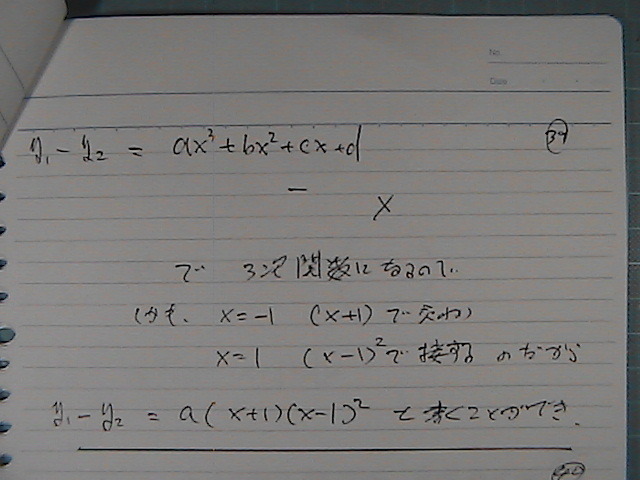 No.
Date
y₁ - y₂ = ax³ + bx² + cx + d
−
x
で 3次関数になるので、
しかも、 x = -1 (x+1) で交わり
x = 1 (x-1)² で接する のだから
y₁ - y₂ = a(x+1)(x-1)² と書くことができ、